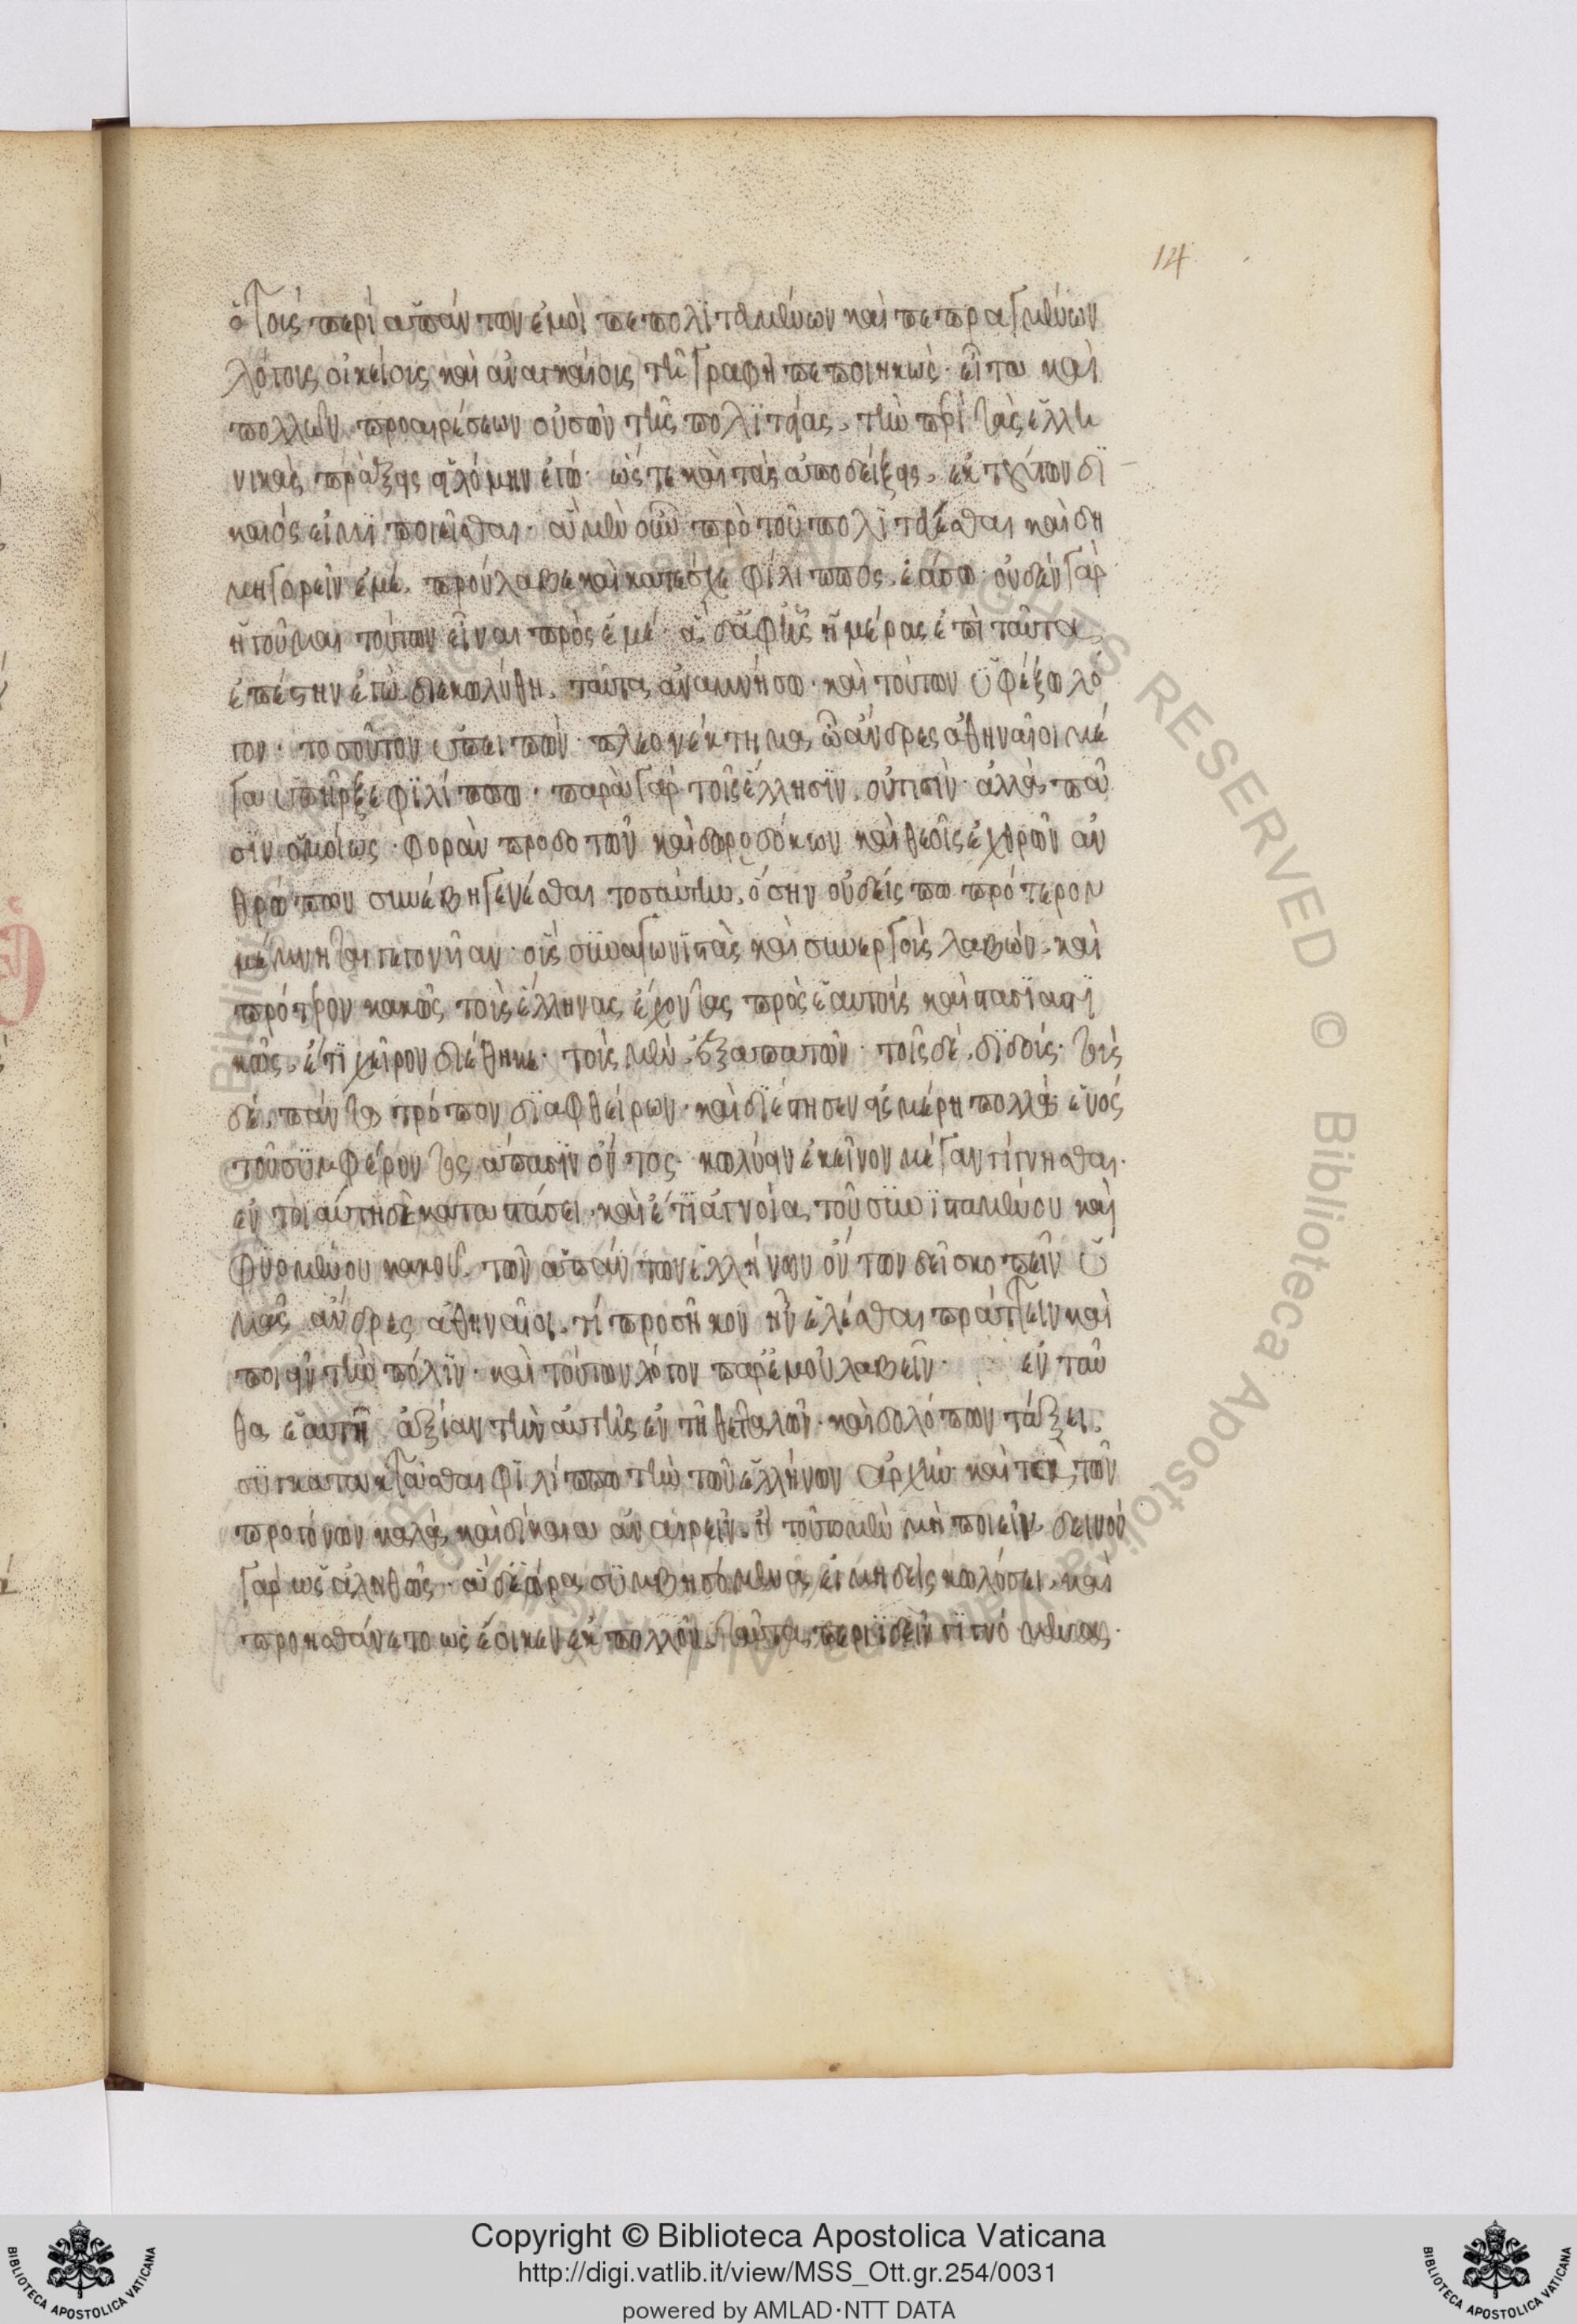 14
ὁ τοὺς περὶ ἁπάντων ἐμοὶ πεπολιτευμένων καὶ πεπραγμένων
λόγους οἰκείους καὶ ἀναγκαίους τῇ γραφῇ πεποιηκώς· εἶτα καὶ
πολλῶν προαιρέσεων οὐσῶν τῆς πολιτείας, τὴν περὶ τὰς ἑλλη
νικὰς πράξεις εἱλόμην ἐγώ· ὥστε καὶ τὰς ἀποδείξεις, ἐκ τούτων δί
καιός εἰμι ποιεῖσθαι· ἃ μὲν οὖν πρὸ τοῦ πολιτεύεσθαι καὶ δη
μηγορεῖν ἐμέ, προύλαβε καὶ κατέσχε φίλιππος, ἐάσω· οὐδὲν γὰρ
ἡγοῦμαι τούτων εἶναι πρὸς ἐμέ· ἃ δ' ἀφ' ἧς ἡμέρας ἐπὶ ταῦτα
ἐπέστην ἐγὼ διεκωλύθη, ταῦτα ἀναμνήσω· καὶ τούτων ὑφέξω λό
γον· τοσοῦτον ὑπειπών· πλεονέκτημα, ὦ ἄνδρες ἀθηναῖοι μέ
γα ὑπῆρξε φιλίππω· παρὰ γὰρ τοῖς ἕλλησιν, οὐ τισὶν· ἀλλὰ πᾶ
σιν ὁμοίως· φορὰν προδοτῶν καὶ δωροδόκων καὶ θεοῖς ἐχθρῶν ἀν
θρώπων συνέβη γενέσθαι τοσαύτην, ὅσην οὐδείς πω πρότερον
μέμνηται γεγονῆαν· οὓς συναγωνιστὰς καὶ συνεργοὺς λαβών, καὶ
πρότερον κακῶς τοὺς ἕλληνας ἔχοντας πρὸς ἑαυτοὺς καὶ στασιαστι
κῶς, ἔτι χεῖρον διέθηκε· τοὺς μὲν, ἐξαπατῶν· τοῖς δὲ, διδούς· τοὺς
δὲ, πάντα τρόπον διαφθείρων· καὶ διέστησεν εἰς μέρη πολλὰ ἑνός
τοῦ συμφέροντος ἅπασιν ὄντος· κωλύειν ἐκεῖνον μέγαν γίγνησθαι·
ἐν τοιαύτη δὲ καταστάσει· καὶ ἔτι ἀγνοία τοῦ συνισταμένου καὶ
φυομένου κακοῦ, τῶν ἁπάντων ἑλλήνων ὄντων δεῖ σκοπεῖν ὑ
μᾶς ἄνδρες ἀθηναῖοι, τί προσῆκον ἦν ἑλέσθαι πράττειν καὶ
ποιεῖν τὴν πόλιν· καὶ τούτων λόγον παρ' ἐμοῦ λαβεῖν· ἐνταῦ
θα ἑαυτὴ ἀξίαν τὴν αὐτῆς ἐν τῇ θετταλῶν· καὶ δολόπων τάξει,
συγκατακτᾶσθαι φιλίππω τὴν τῶν ἑλλήνων ἀρχὴν καὶ τὰ τῶν
προγόνων καλὰ καὶ δίκαια ἀναιρεῖν, ἢ τοῦτο μὲν μὴ ποιεῖν, δεινὸν
γὰρ ὡς ἀληθῶς· ἃ δ' ἑώρα συμβησόμενα, εἰ μηδεὶς κωλύσει, καὶ
προῃσθάνετο ὡς ἔοικεν ἐκ πολλοῦ, ταῦτα περιϊδεῖν γιγνόμενα;
Copyright © Biblioteca Apostolica Vaticana
http://digi.vatlib.it/view/MSS_Ott.gr.254/0031
powered by AMLAD·NTT DATA